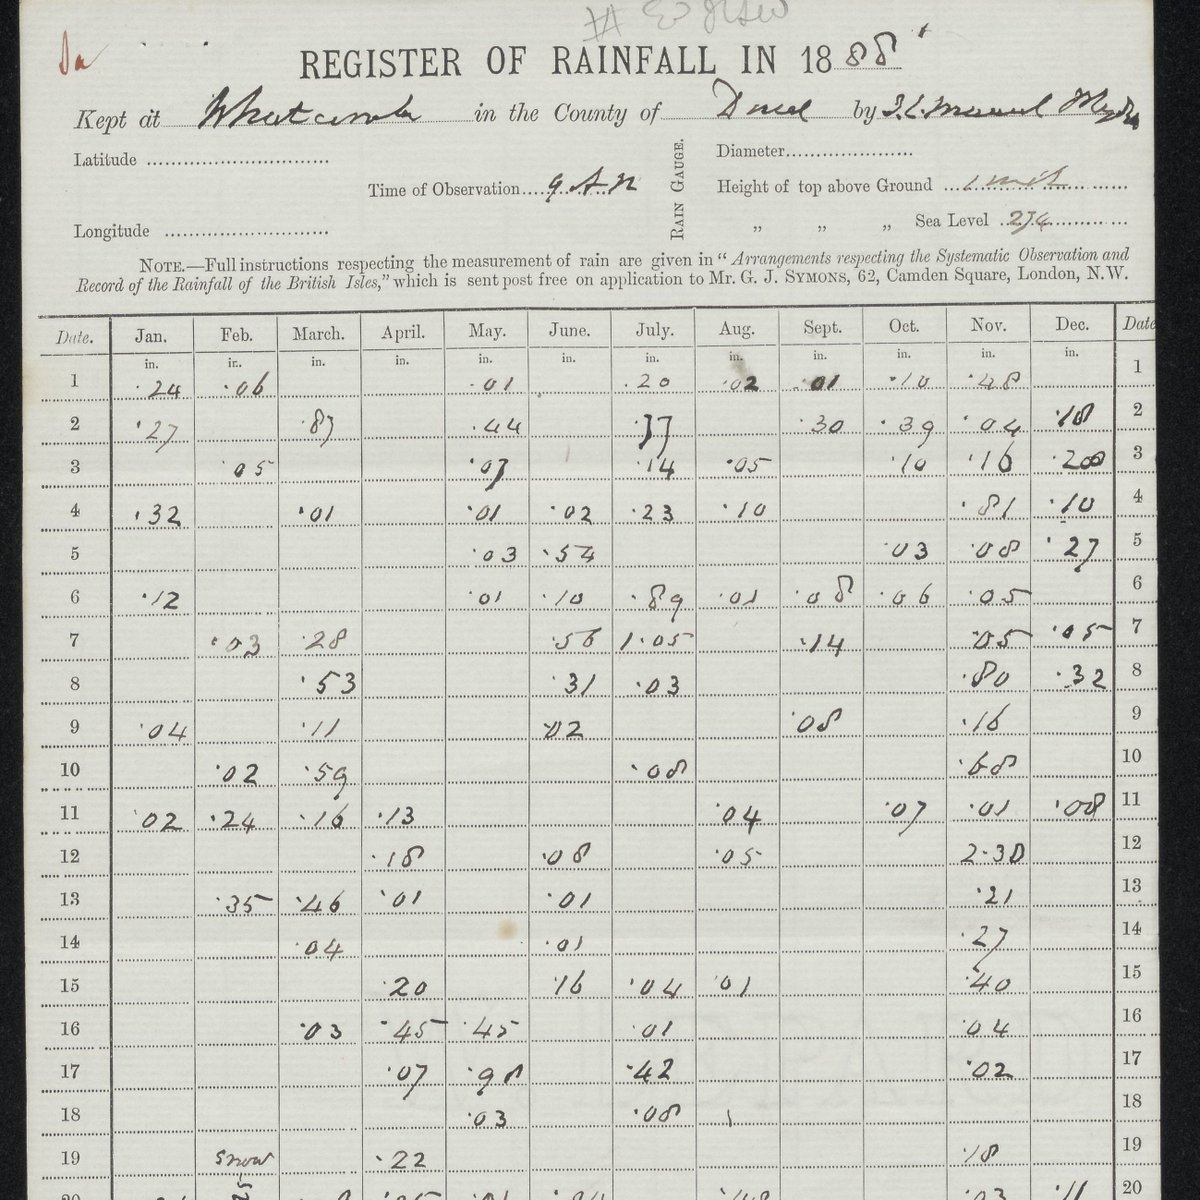 Da
REGISTER OF RAINFALL IN 1888
Kept at in the County of Dorset by
Latitude
Time of Observation 9 A.M
Longitude
RAIN GAUGE.
Diameter
Height of top above Ground
„ „ „ Sea Level 234
NOTE.—Full instructions respecting the measurement of rain are given in "Arrangements respecting the Systematic Observation and
Record of the Rainfall of the British Isles," which is sent post free on application to Mr. G. J. SYMONS, 62, Camden Square, London, N.W.
Date. Jan. Feb. March. April. May. June. July. Aug. Sept. Oct. Nov. Dec. Date
in. in. in. in. in. in. in. in. in. in. in. in.
1 .24 .06 .01 .20 .02 .01 .10 .48 1
2 .27 .87 .44 .77 .30 .39 .04 .18 2
3 .05 .07 .14 .05 .10 .16 3
4 .32 .01 .01 .02 .23 .10 .81 .10 4
5 .03 .54 .03 .08 .27 5
6 .12 .01 .10 .89 .01 .08 .06 .05 6
7 .03 .28 .56 1.05 .14 .05 .05 7
8 .53 .31 .03 .80 .32 8
9 .04 .11 .02 .08 .16 9
10 .02 .59 .08 .68 10
11 .02 .24 .16 .13 .04 .07 .01 .08 11
12 .18 .08 .05 2.30 12
13 .35 .46 .01 .01 .21 13
14 .04 .01 .27 14
15 .20 .16 .04 .01 .40 15
16 .03 .45 .45 .01 .04 16
17 .07 .98 .42 .02 17
18 .03 .08 18
19 snow .22 .18 19
20 .03 .11 20